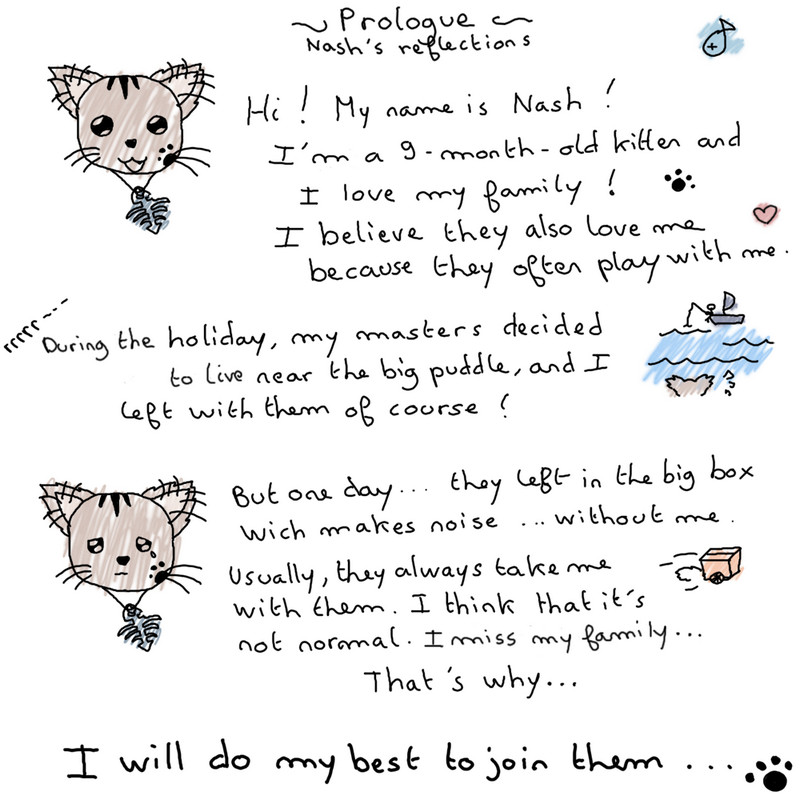 Prologue
Nash's reflections
Hi ! My name is Nash !
I'm a 9-month-old kitten and
I love my family !
I believe they also love me
because they often play with me.
During the holiday, my masters decided
to live near the big puddle, and I
left with them of course !
But one day... they left in the big box
wich makes noise ... without me.
Usually, they always take me
with them. I think that it's
not normal. I miss my family...
That's why...
I will do my best to join them ...